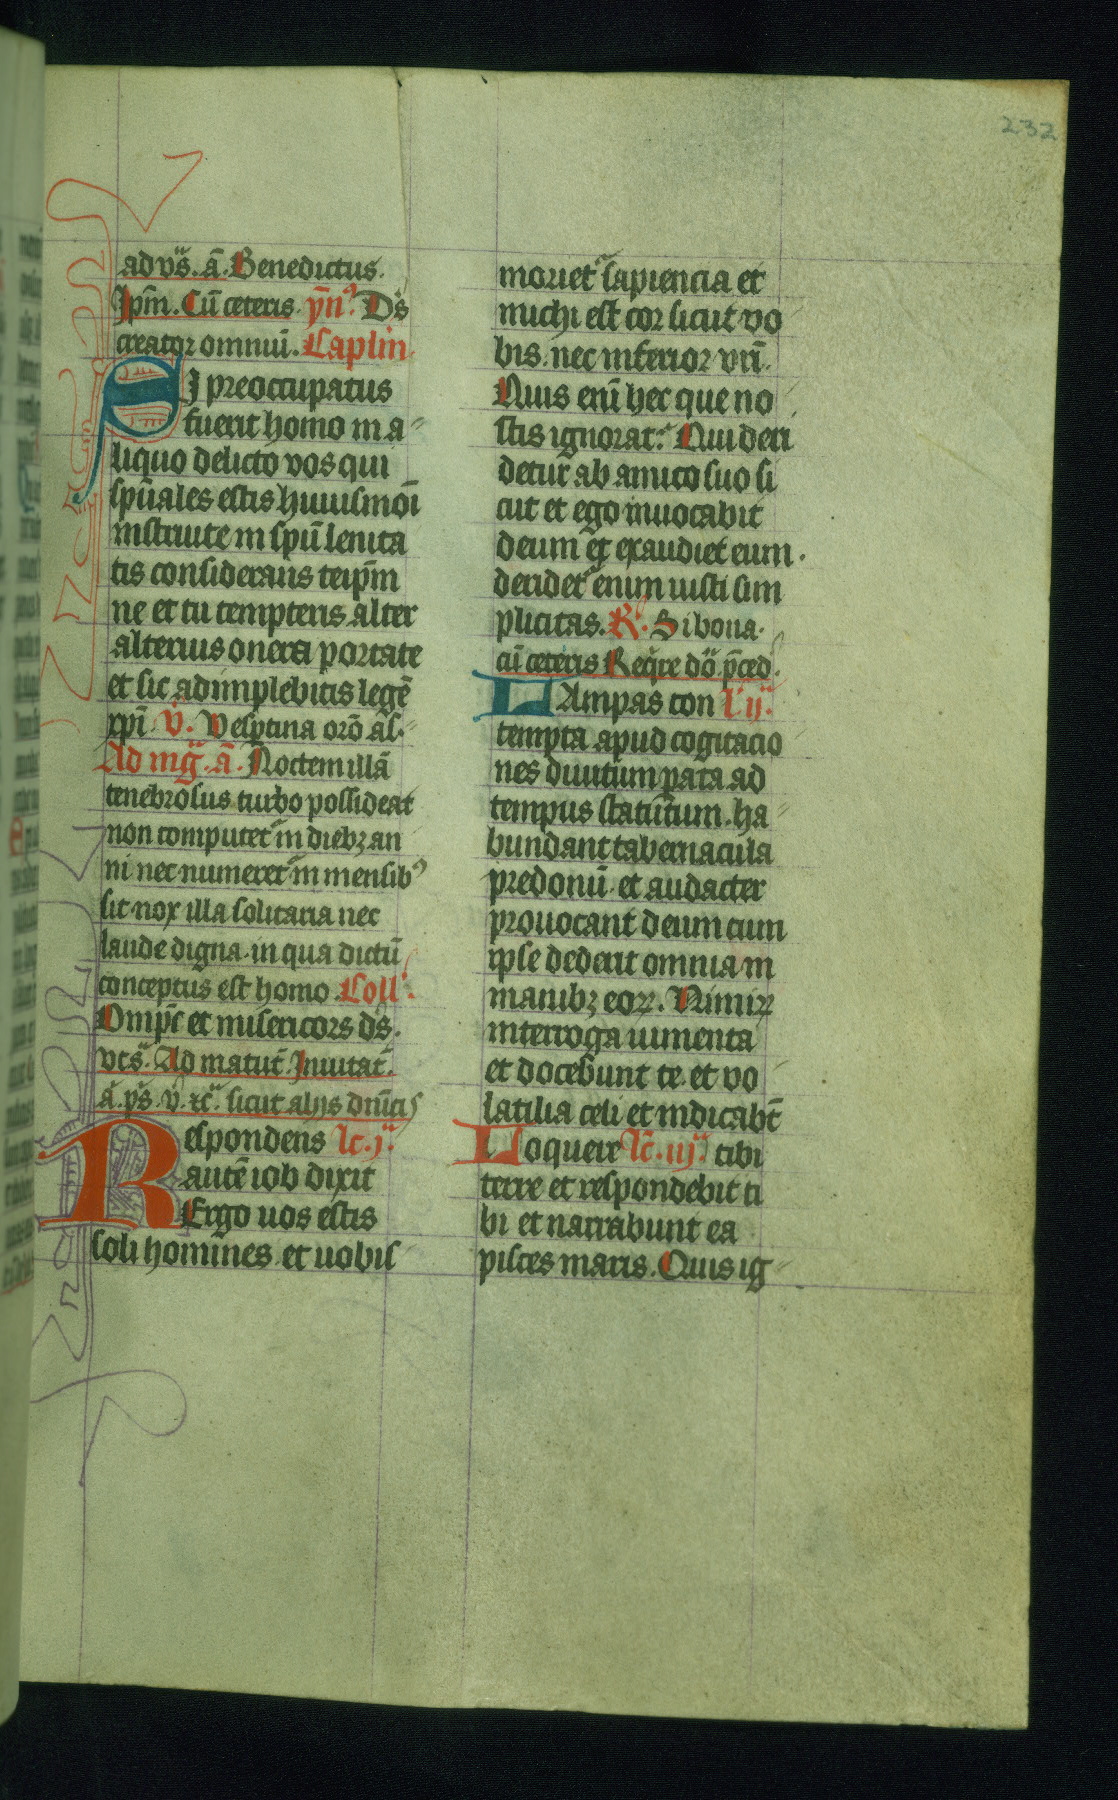 232
ad vs̃. ã. Benedictus.
Ipm̃. Cũ ceteris. ẏmꝰ. Ds̃
creator omniũ. Caplm̃.
SI preoccupatus
fuerit homo in a-
liquo delicto vos qui
spũales estis huiusmoi
instruite in spũ lenita
tis considerans teipm̃
ne et tu tempteris alter
alterius onera portate
et sic adimplebitis legẽ
xpi. v̇. Vesptina orõ as̃.
Ad mg̃. ã. Noctem illã
tenebrosus turbo possideat
non computet᷑ in diebꝫ an
ni nec numeret᷑ in mensibꝰ
sit nox illa solitaria nec
laude digna. in qua dictũ
conceptus est homo. Coll᷑.
Omps̃ et misericors ds̃.
vts᷑. Ad matut̃. Inuitat̃.
ã. ps̃. v̇. ⁊c̃. sicut alijs dñicis
Respondens lc̃. j᷑.
autẽ iob dixit
Ergo uos estis
soli homines. et uobis
moriet᷑ sapiencia et
michi est cor sicut vo
bis. nec inferior vrĩ.
Quis enĩ hec que no
stis ignorat: Qui deri
detur ab amico suo si
cut et ego inuocabit
deum et exaudiet eum.
deridet᷑ enim iusti sim
plicitas. R᷑. Si bona.
cũ ceteris Reqͥre dõ. p̃ced̃.
LAmpas con l᷑ ij᷑.
tempta apud cogitacio
nes diuitum parata ad
tempus statutum. ha-
bundant tabernacula
predonũ. et audacter
prouocant deum cum
ipse dederit omnia in
manibꝫ eoꝝ. Nimiꝝ
interroga iumenta
et docebunt te. et vo
latilia celi et indicabt̃
Loquere lc̃. iij᷑. tibi
terre et respondebit ti
bi et narrabunt ea
pisces maris. Quis ig-